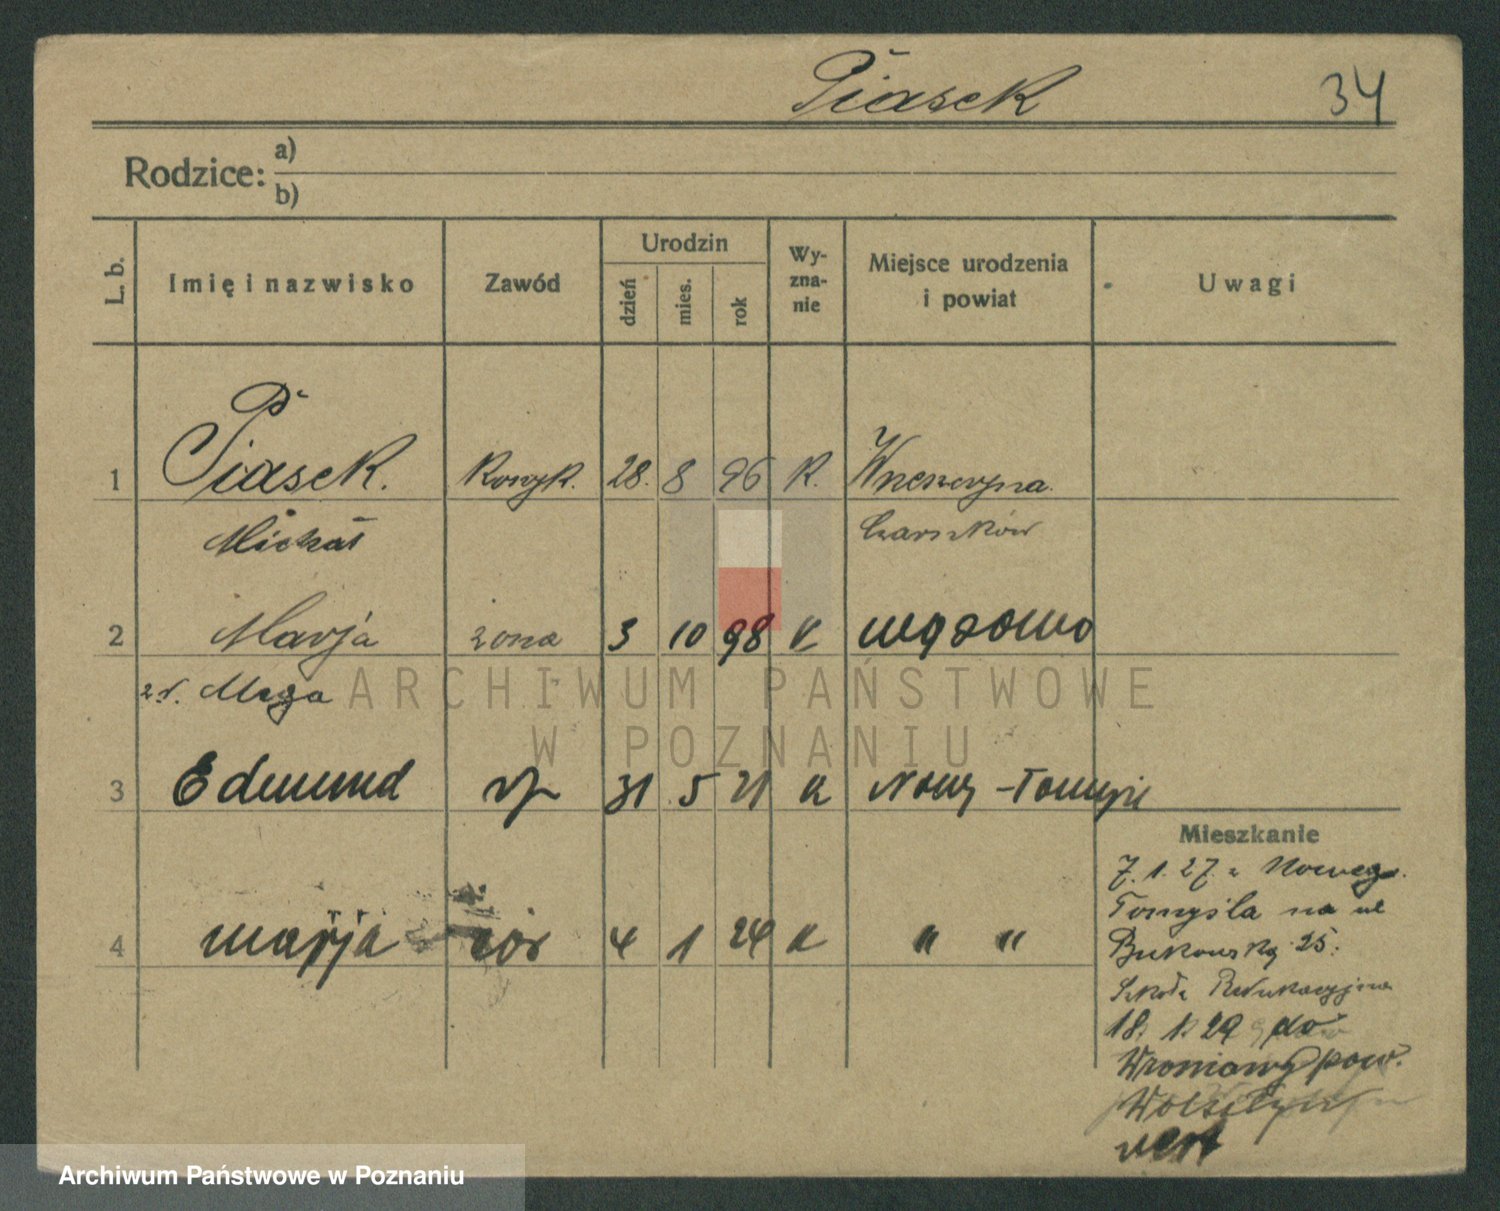 Piasek 34
Rodzice: a)
b)
L. b. Imię i nazwisko Zawód Urodzin dzień mies. rok Wy-zna-nie Miejsce urodzenia i powiat Uwagi
1 Piasek. 28. 8 96 K.
Michał Czarnków
2 Marja żona 3 10 98 K Wąsowo
ARCHIWUM PAŃSTWOWE
W POZNANIU
3 Edmund 31 5 21 K Nowy-Tomyśl
Mieszkanie
7. 1. 27 z Nowego
Tomyśla na ul
4 Marja cór 4 1 24 K " "
Bukowską 25.
Szkoła
18. 1. 29 do
Wroniawy pow.
Wolsztyn
Archiwum Państwowe w Poznaniu